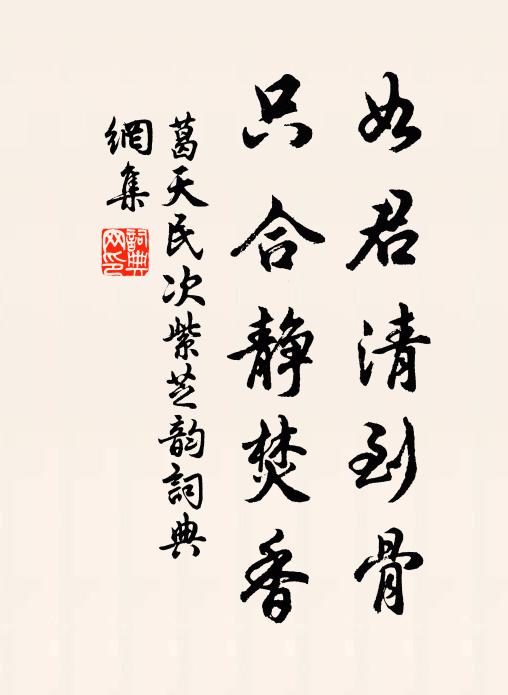 如君清到骨
只合静焚香
葛天民次紫芝韵詞典
網集
詞典
网印